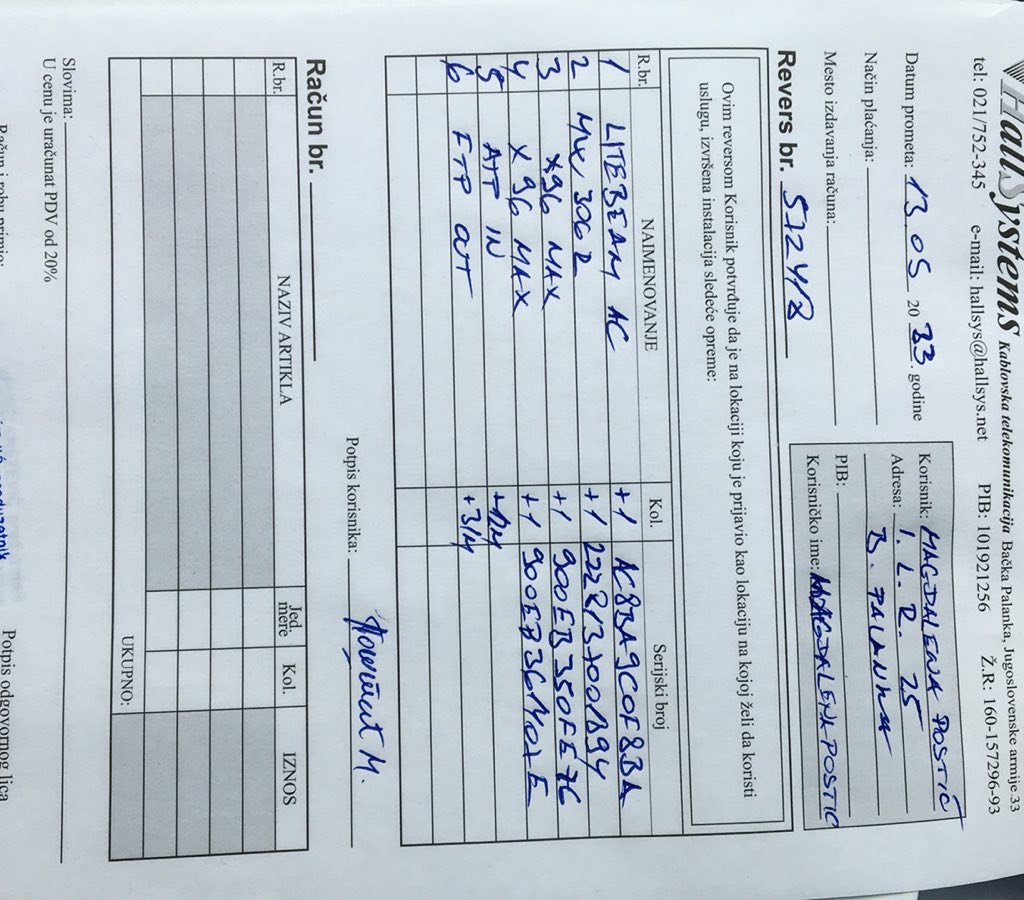 HallSystems Kablovska telekomunikacija Bačka Palanka, Jugoslovenske armije 33
tel: 021/752-345 e-mail: hallsys@hallsys.net PIB: 101921256 Ž.R: 160-157296-93
Datum prometa: 13.05 20 23. godine
Način plaćanja:
Mesto izdavanja računa:
Korisnik: MAGDALENA POSTIĆ
Adresa: I. L. R. 25
B. PALANKA
PIB:
Korisničko ime: MAGDALENA POSTIĆ
Revers br.
Ovim reversom Korisnik potvrđuje da je na lokaciji koju je prijavio kao lokaciju na kojoj želi da koristi
uslugu, izvršena instalacija sledeće opreme:
R.br. NAIMENOVANJE Kol. Serijski broj
1 LITEBEAM AC +1
2 +1
3 X96 MAX +1 900EB350FE76
4 X96 MAX +1
5 IN
6 FTP OUT
Potpis korisnika:
Račun br.
R.br. NAZIV ARTIKLA Jed. mere Kol. IZNOS
UKUPNO:
Slovima:
U cenu je uračunat PDV od 20%
Račun i robu primio: Potpis odgovornog lica